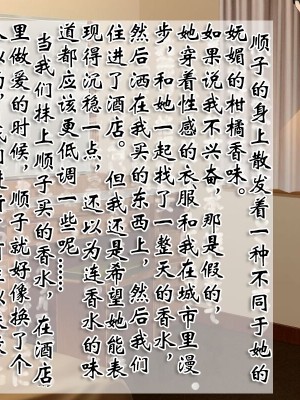 顺子的身上散发着一种不同于她的
妩媚的柑橘香味。
如果说我不兴奋，那是假的，
她穿着性感的衣服和我在城市里漫
步，和她一起找了一整天的香水，
然后洒在我买的东西上，然后我们
住进了酒店。但我还是希望她能表
现得沉稳一点，还以为连香水的味
道都应该更低调一些呢……
当我们抹上顺子买的香水，在酒店
里做爱的时候，顺子就好像换了个